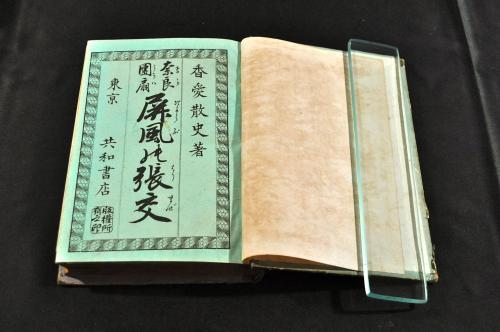 香愛散史著
奈良
團扇
屏風の張交
東京
共和書店
版權所
有之印